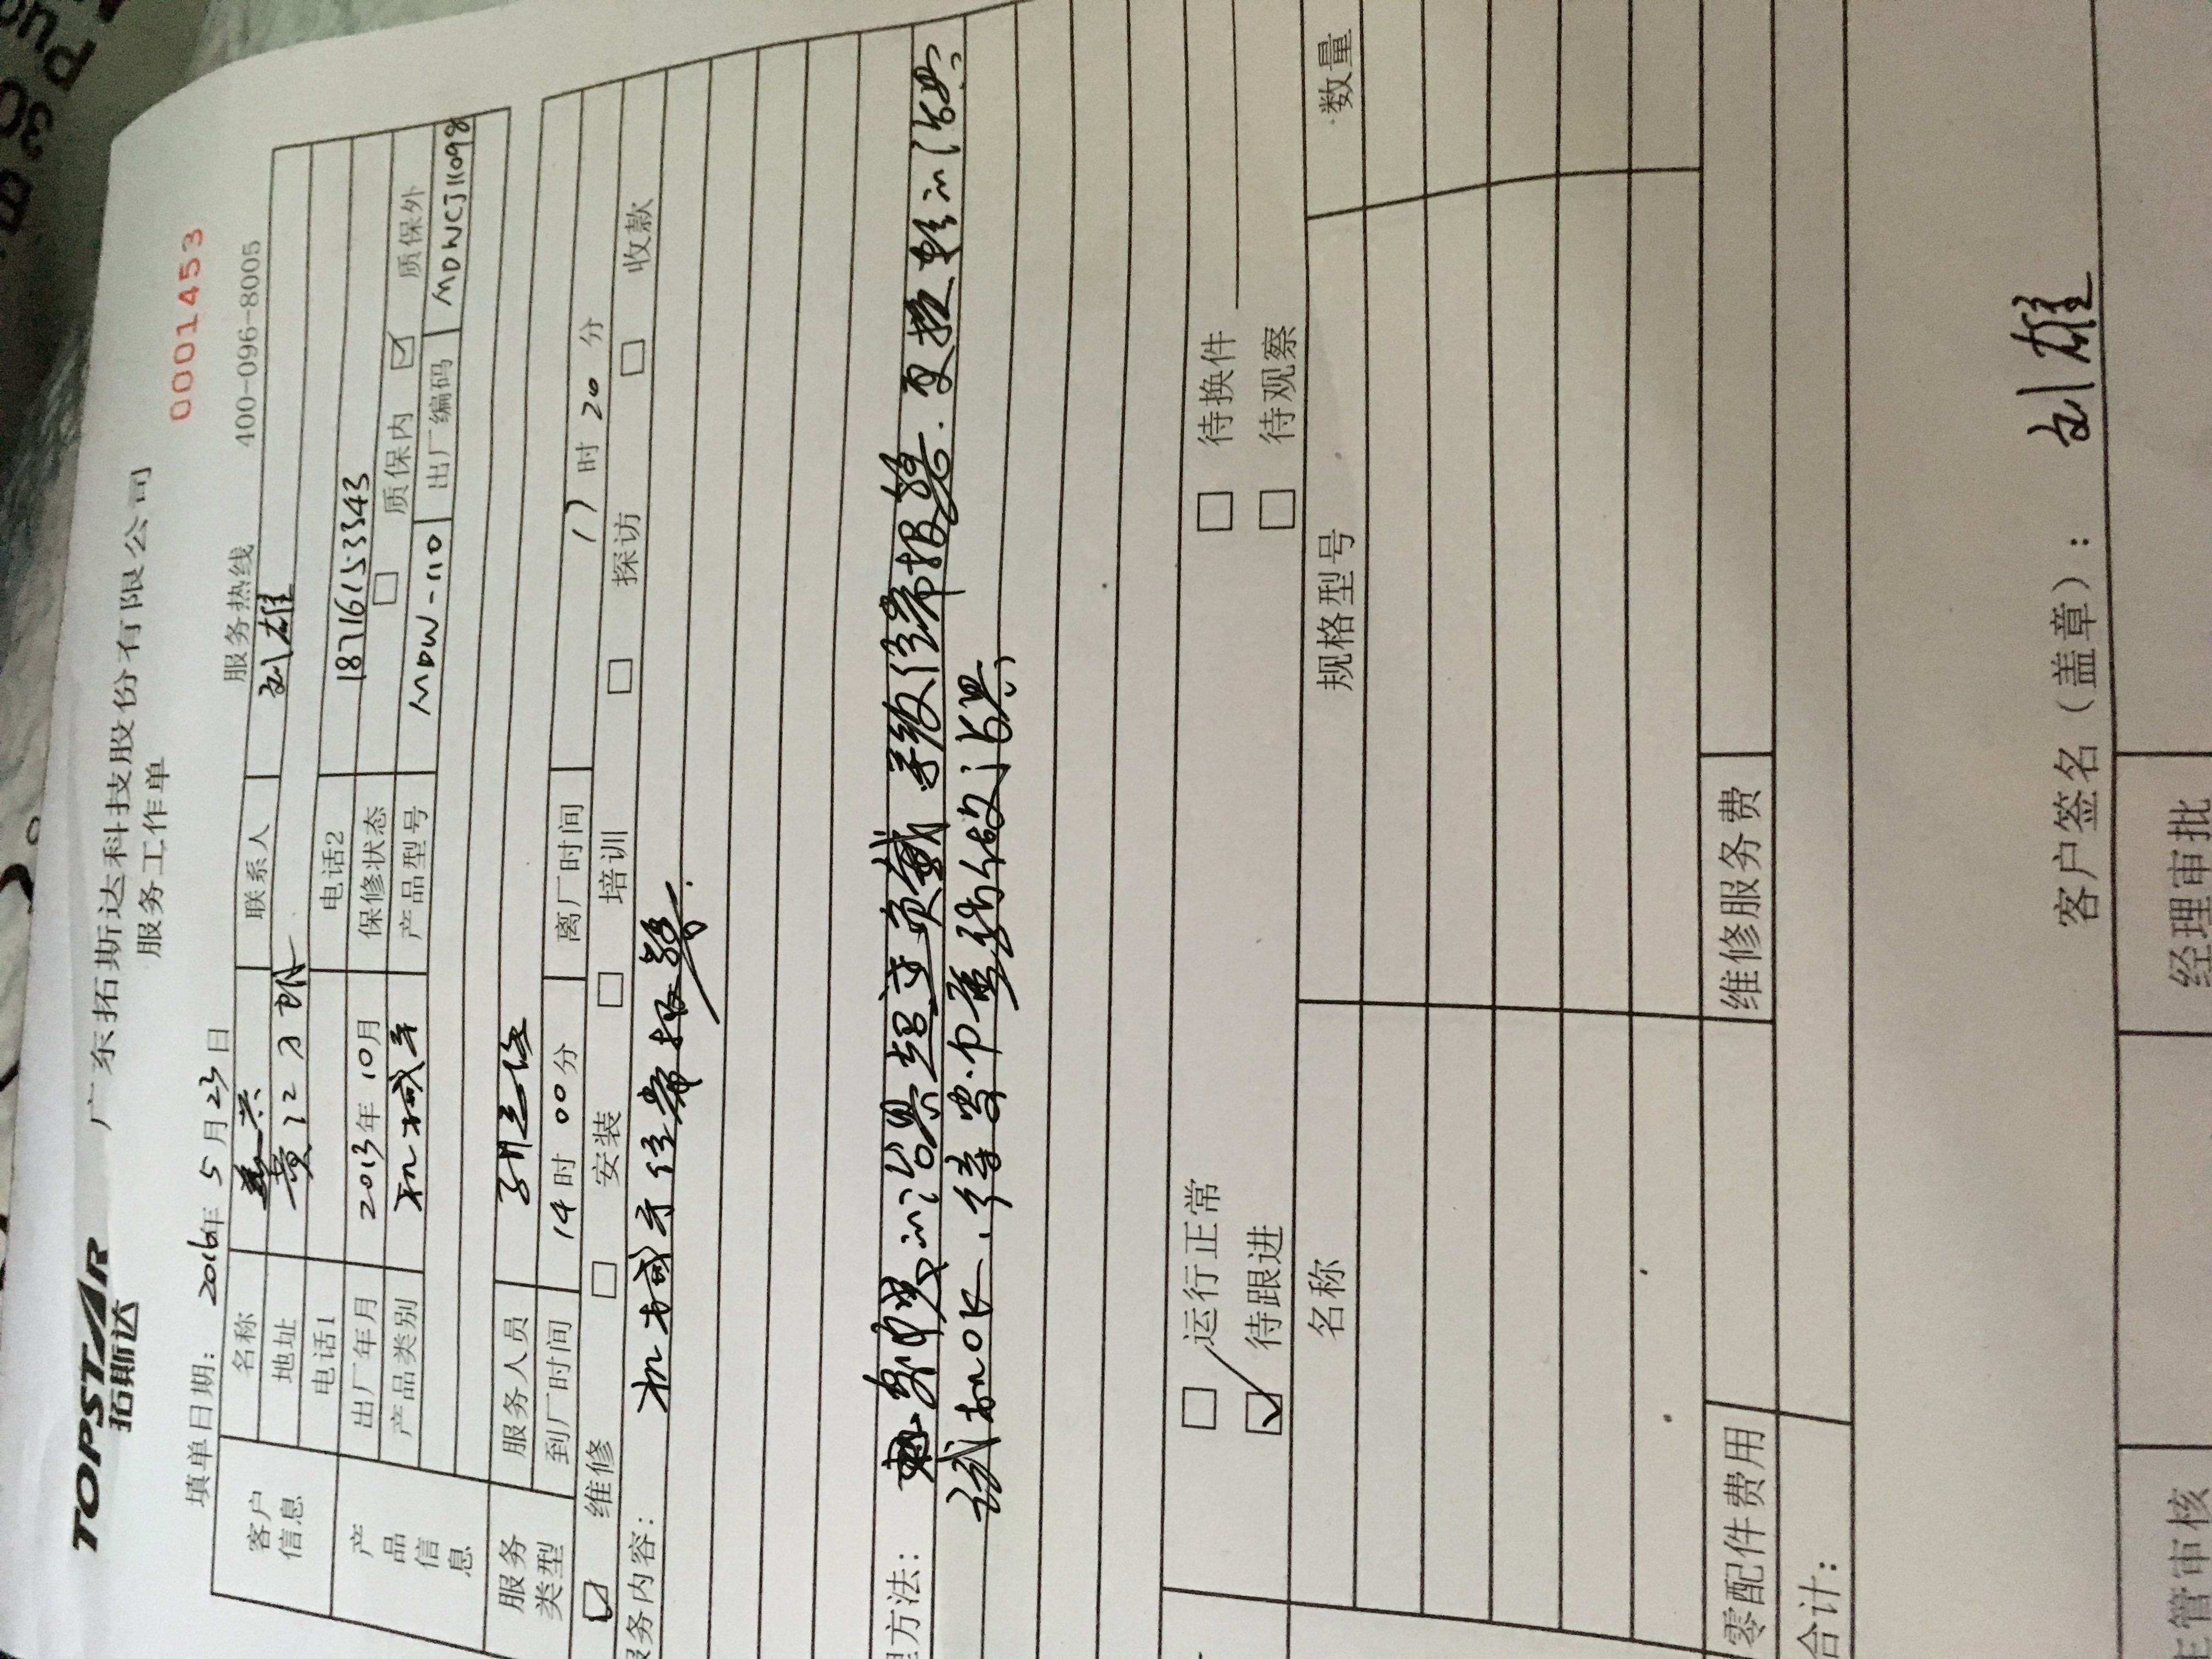 TOPSTAR
拓斯达
广东拓斯达科技股份有限公司
服务工作单
0001453
填单日期: 2016年 5月 23日
服务热线 400-096-8005
客户信息
名称
联系人 刘雄
地址 黄江
电话1
电话2 18716153343
产品信息
出厂年月 2013年 10月
保修状态 □ 质保内 ☑ 质保外
产品类别 机械手
产品型号 MDW-1110
出厂编码 MDWCJ11098
服务类型
服务人员
到厂时间 14时 00分
离厂时间 17时 20分
☑ 维修 □ 安装 □ 培训 □ 探访 □ 收款
服务内容:
机械手经常报警.
理方法:
治具超过负载 导致经常报警. 更换轻的治具
试机OK. 待客户重新做治具,
□ 运行正常 □ 待换件
☑ 待跟进 □ 待观察
名称 规格型号 数量
零配件费用 维修服务费
合计:
客户签名(盖章): 刘雄
主管审核 经理审批